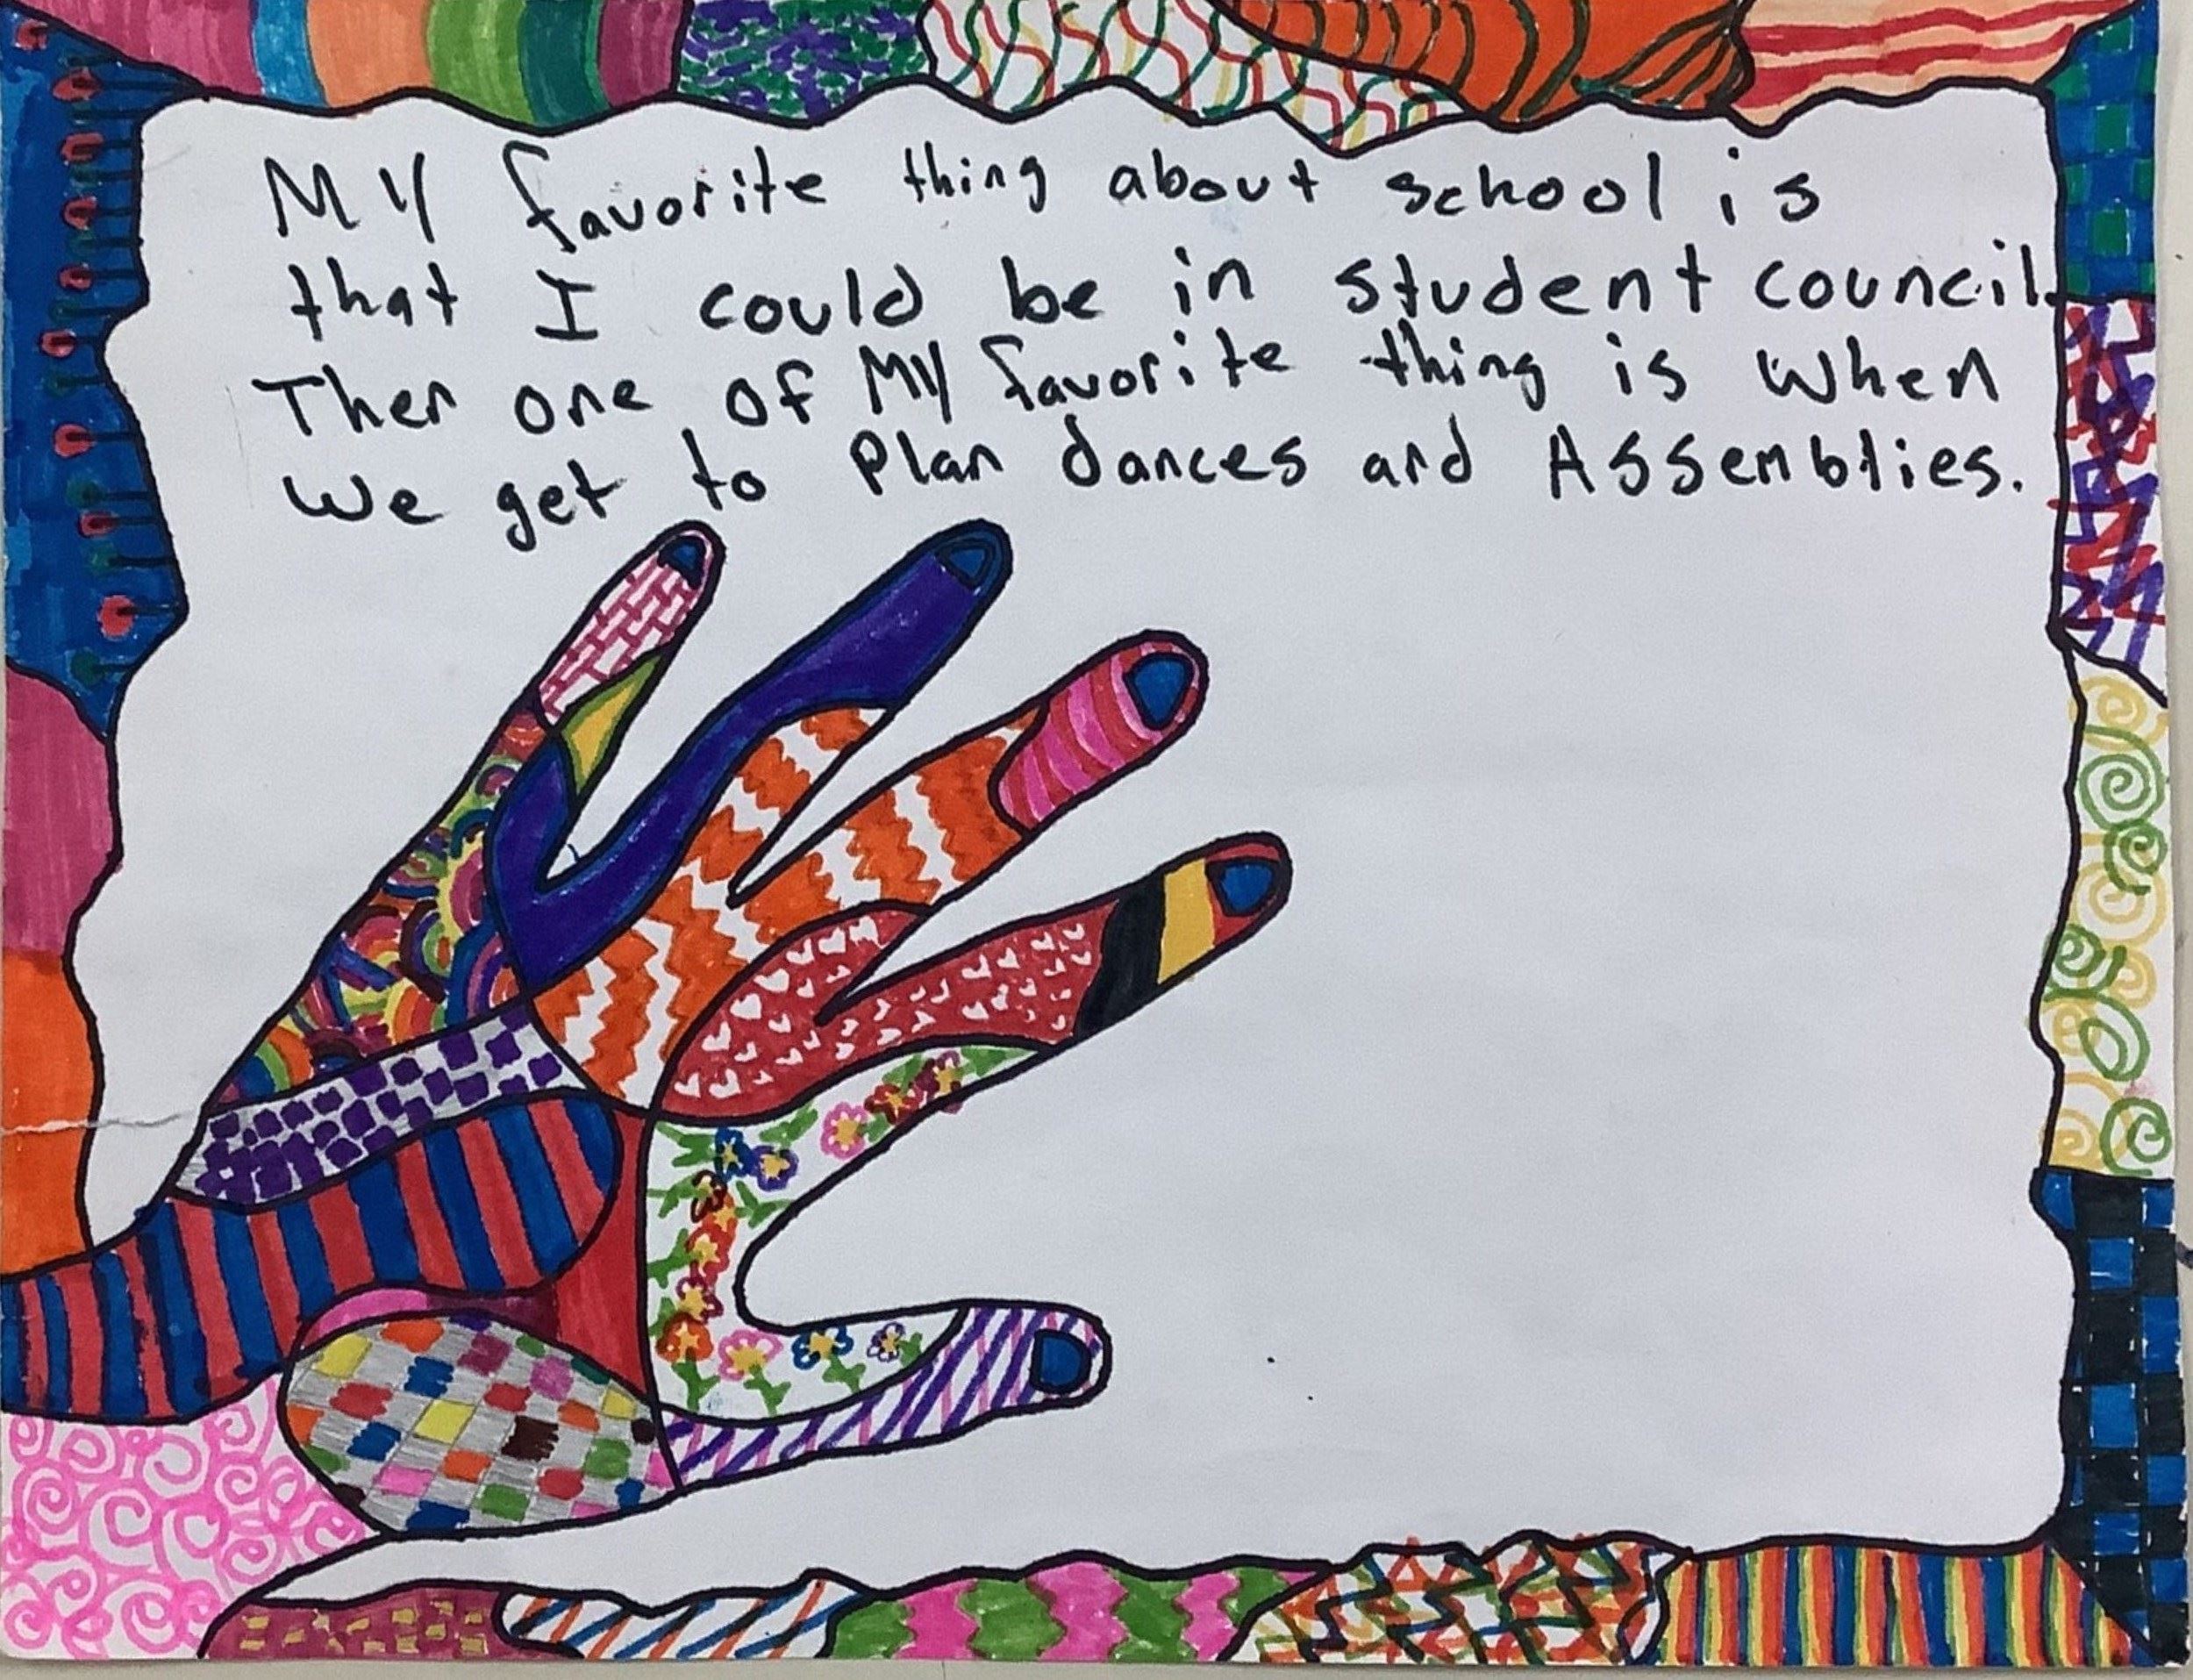 My favorite thing about school is
that I could be in student council.
Then one of My favorite thing is when
we get to Plan dances and Assemblies.